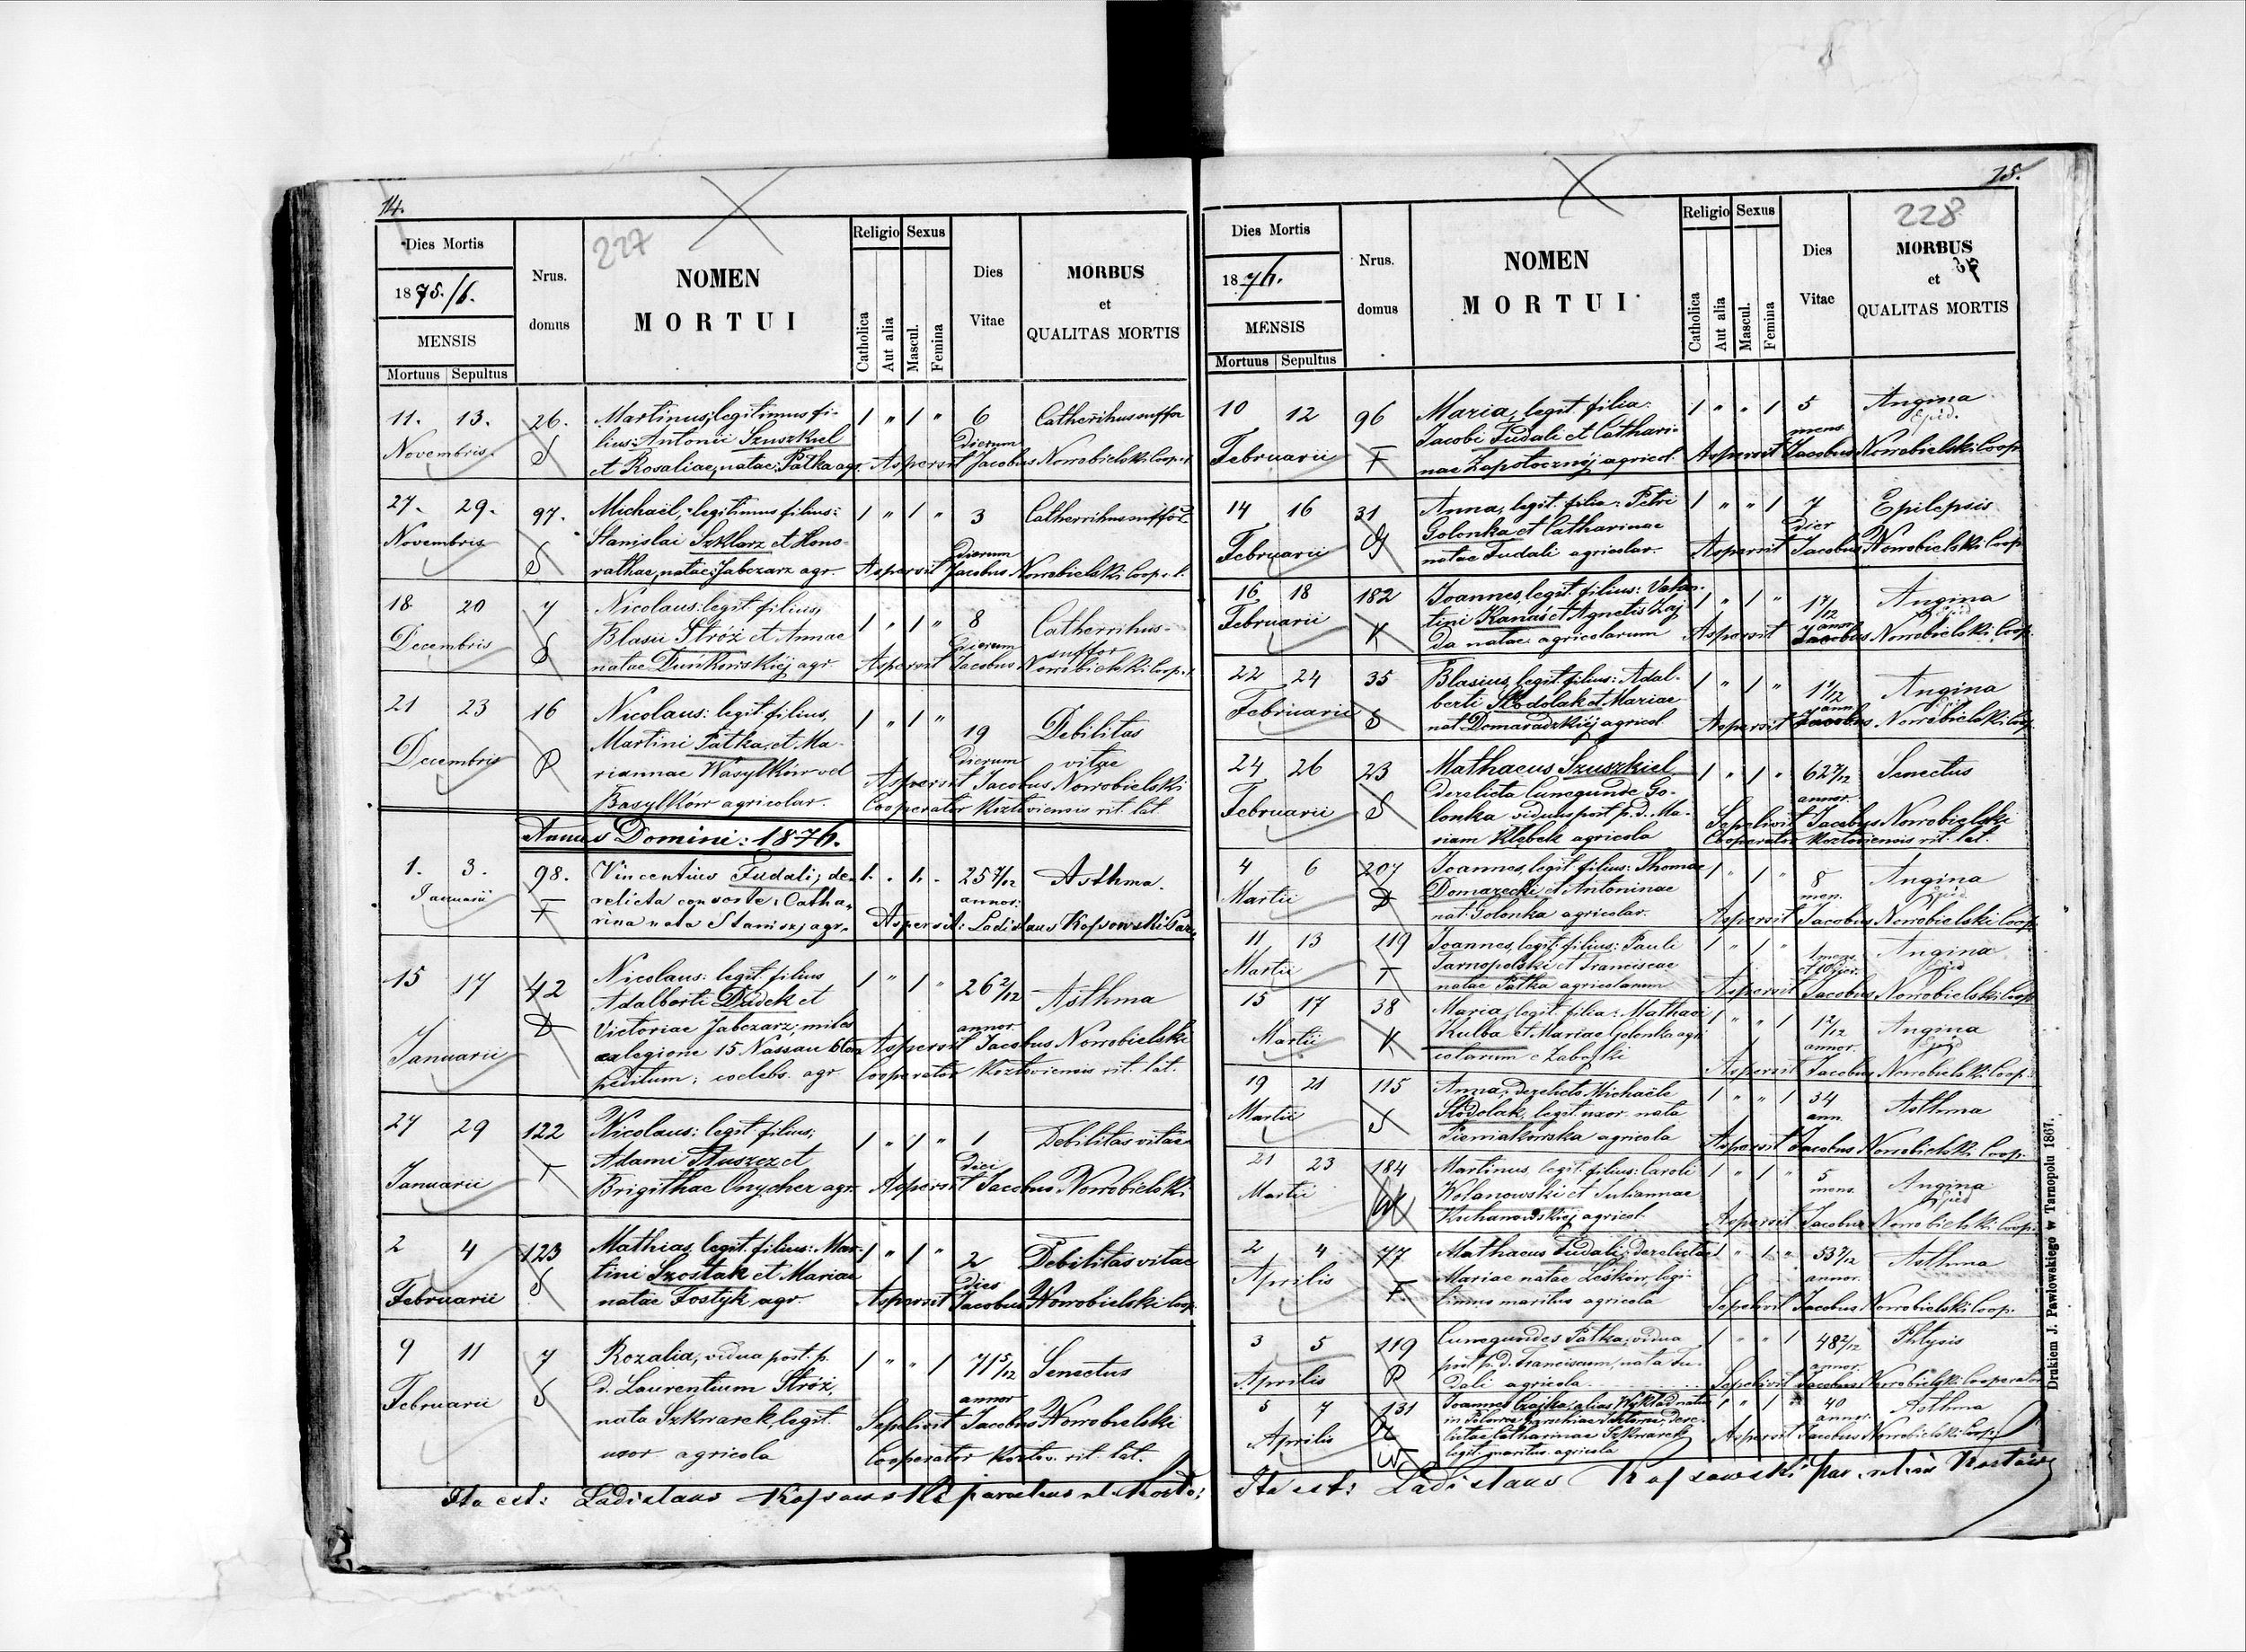 14.
227
Dies Mortis
1875./6.
MENSIS
Mortuus Sepultus
Nrus. domus
NOMEN
MORTUI
Religio Sexus
Catholica
Aut alia
Mascul.
Femina
Dies Vitae
MORBUS
et
QUALITAS MORTIS
11. 13. 26. Martinus; legitimus fi- 1 " 1 " 6 Catherrhus suffoc
lius: Antonii Szuszkiel Dierum
Novembris. S et Rosaliae, natae: Patka agr. Aspersit Jacobus Nowobielski Coop.
27. 29. 97. Michaël, legitimus filius: 1 " 1 " 3 Catherrhus suffoc.
Novembris Stanislai Szklarz et Hono- Dierum
S rathae, natae: Jabczarz agr. Aspersit Jacobus Nowobielski Coop.
18 20 7 Nicolaus: legit. filius, 1 " 1 " 8 Catherrhus
Decembris Blasii Stróż et Annae Dierum suffoc
S natae Duńkowskiéj agr Aspersit Jacobus Nowobielski Coop.
21 23 16 Nicolaus: legit. filius, 1 " 1 " 19 Debilitas
Martini Patka, et Ma- Dierum vitae
Decembris P riannae Wasylków vel Aspersit Jacobus Nowobielski
Basylków agricolar. Cooperator Kozłoviensis rit. lat.
Annus Domini: 1876.
1. 3. 98. Vincentius Fudali; de- 1. . 1. . 25 7/12 Asthma.
Januarii F relicta consorte: Catha- annor.
rina nata Stanisz, agr. Aspersit: Ladislaus Kossowski
15 17 42 Nicolaus: legit. filius 1 " 1 " 26 2/12 Asthma
D Adalberti Dudek et annor
Victoriae Jabczarz; miles
Januarii legione 15 Nassau Aspersit Jacobus Nowobielski
peditum; coelebs. agr Cooperator Kozłoviensis rit. lat.
27 29 122 Nicolaus: legit. filius; 1 " 1 " 1 Debilitas vitae
Adami Tłuszcz et diei
Januarii T Brigithae Onycher agr. Aspersit Jacobus Nowobielski
2 4 123 Mathias, legit. filius: Mar- 1 " 1 " 2 Debilitas vitae
tini Szostak et Mariae Dies
Februarii S natae Fostyk agr. Aspersit Jacobus Nowobielski Coop.
9 11 7 Rozalia, vidua post. p. 1 " " 1 71 5/12 Senectus
d. Laurentium Stróż, annor
Februarii S nata Szkwarek, legit. Sepelivit Jacobus Nowobielski
uxor agricola Cooperator Kozłov. rit. lat.
Ita est: Ladislaus Kossowski
15.
228
Dies Mortis
1876.
MENSIS
Mortuus Sepultus
Nrus. domus
NOMEN
MORTUI
Religio Sexus
Catholica
Aut alia
Mascul.
Femina
Dies Vitae
MORBUS
et
QUALITAS MORTIS
10 12 96 Maria, legit. filia: 1 " " 1 5 Angina
Jacobi Fudali et Cathari- mens. Epid.
Februarii F nae Zapotocznéj agricol. Aspersit Jacobus Nowobielski Coop.
14 16 31 Anna, legit. filia: Petri 1 " " 1 7 Epilepsis
Golonka et Catharinae dier
Februarii G natae Fudali agricolar. Aspersit Jacobus Nowobielski Coop.
16 18 182 Joannes, legit. filius: Valen- 1 " 1 " 1 7/12 Angina
Februarii tini Kanas et Agnetis Zaj annor Epid
K da natae agricolarum Aspersit Jacobus Nowobielski Coop.
22 24 35 Blasius, legit. filius: Adal- 1 " 1 " Angina
Februarii berti Stodolak et Mariae ann Epid
S nat. Domaradzkiéj agricol. Aspersit Jacobus Nowobielski Coop.
24 26 23 Mathaeus Szuszkiel 1 " 1 " 62 7/12 Senectus
derelicta Cunegunde Go- annor.
Februarii S lonka viduus post p. d. Ma- Sepelivit Jacobus Nowobielski
riam Klębek agricola Cooperator Kozłoviensis rit. lat.
4 6 207 Joannes, legit. filius: Thomae 1 " 1 " 8 Angina
Martii D Domarecki et Antoninae men. Epid.
nat. Golonka agricolar. Aspersit Jacobus Nowobielski Coop.
11 13 119 Joannes, legit. filius: Pauli 1 " 1 " 1 mens. Angina
Martii T Tarnopolski et Franciscae Epid
natae Patka agricolarum Aspersit Jacobus Nowobielski Coop
15 17 38 Maria, legit. filia: Mathaei 1 " " 1 1 2/12 Angina
Martii K Kulba et Mariae Golonka agri annor. Epid
colarum Aspersit Jacobus Nowobielski Coop.
19 21 115 Anna, derelicto Michaële 1 " " 1 34 Asthma
Martii Stodolak, legit. uxor nata ann.
S Pieniakowska agricola Aspersit Jacobus Nowobielski Coop.
21 23 184 Martinus, legit. filius: Caroli 1 " 1 " 5 Angina
Martii W Wolanowski et Juliannae mens. Epid
Kuchanowskiéj agricol. Aspersit Jacobus Nowobielski Coop.
2 4 77 Mathaeus Fudali; derelictae 1 " 1 " 53 7/12 Asthma
Aprilis Mariae natae Leśków, legi- annor.
F timus maritus agricola Sepelivit Jacobus Nowobielski Coop.
3 5 119 Cunegundes Patka, vidua 1 " " 1 48 2/12 Phtysis
post p. d. Franciscum, nata Fu- annor.
Aprilis P dali agricola Sepelivit Jacobus Nowobielski Cooperator
5 7 131 Joannes Czajka alias Wykład natus 1 " 1 " 40 Asthma
in parochiae dere- annor.
Aprilis lictae Catharinae Szkwarek Aspersit Jacobus Nowobielski Coop.
legit. maritus agricola
Ita est: Ladislaus Kossowski
Drukiem J. Pawłowskiego w Tarnopolu 1867.